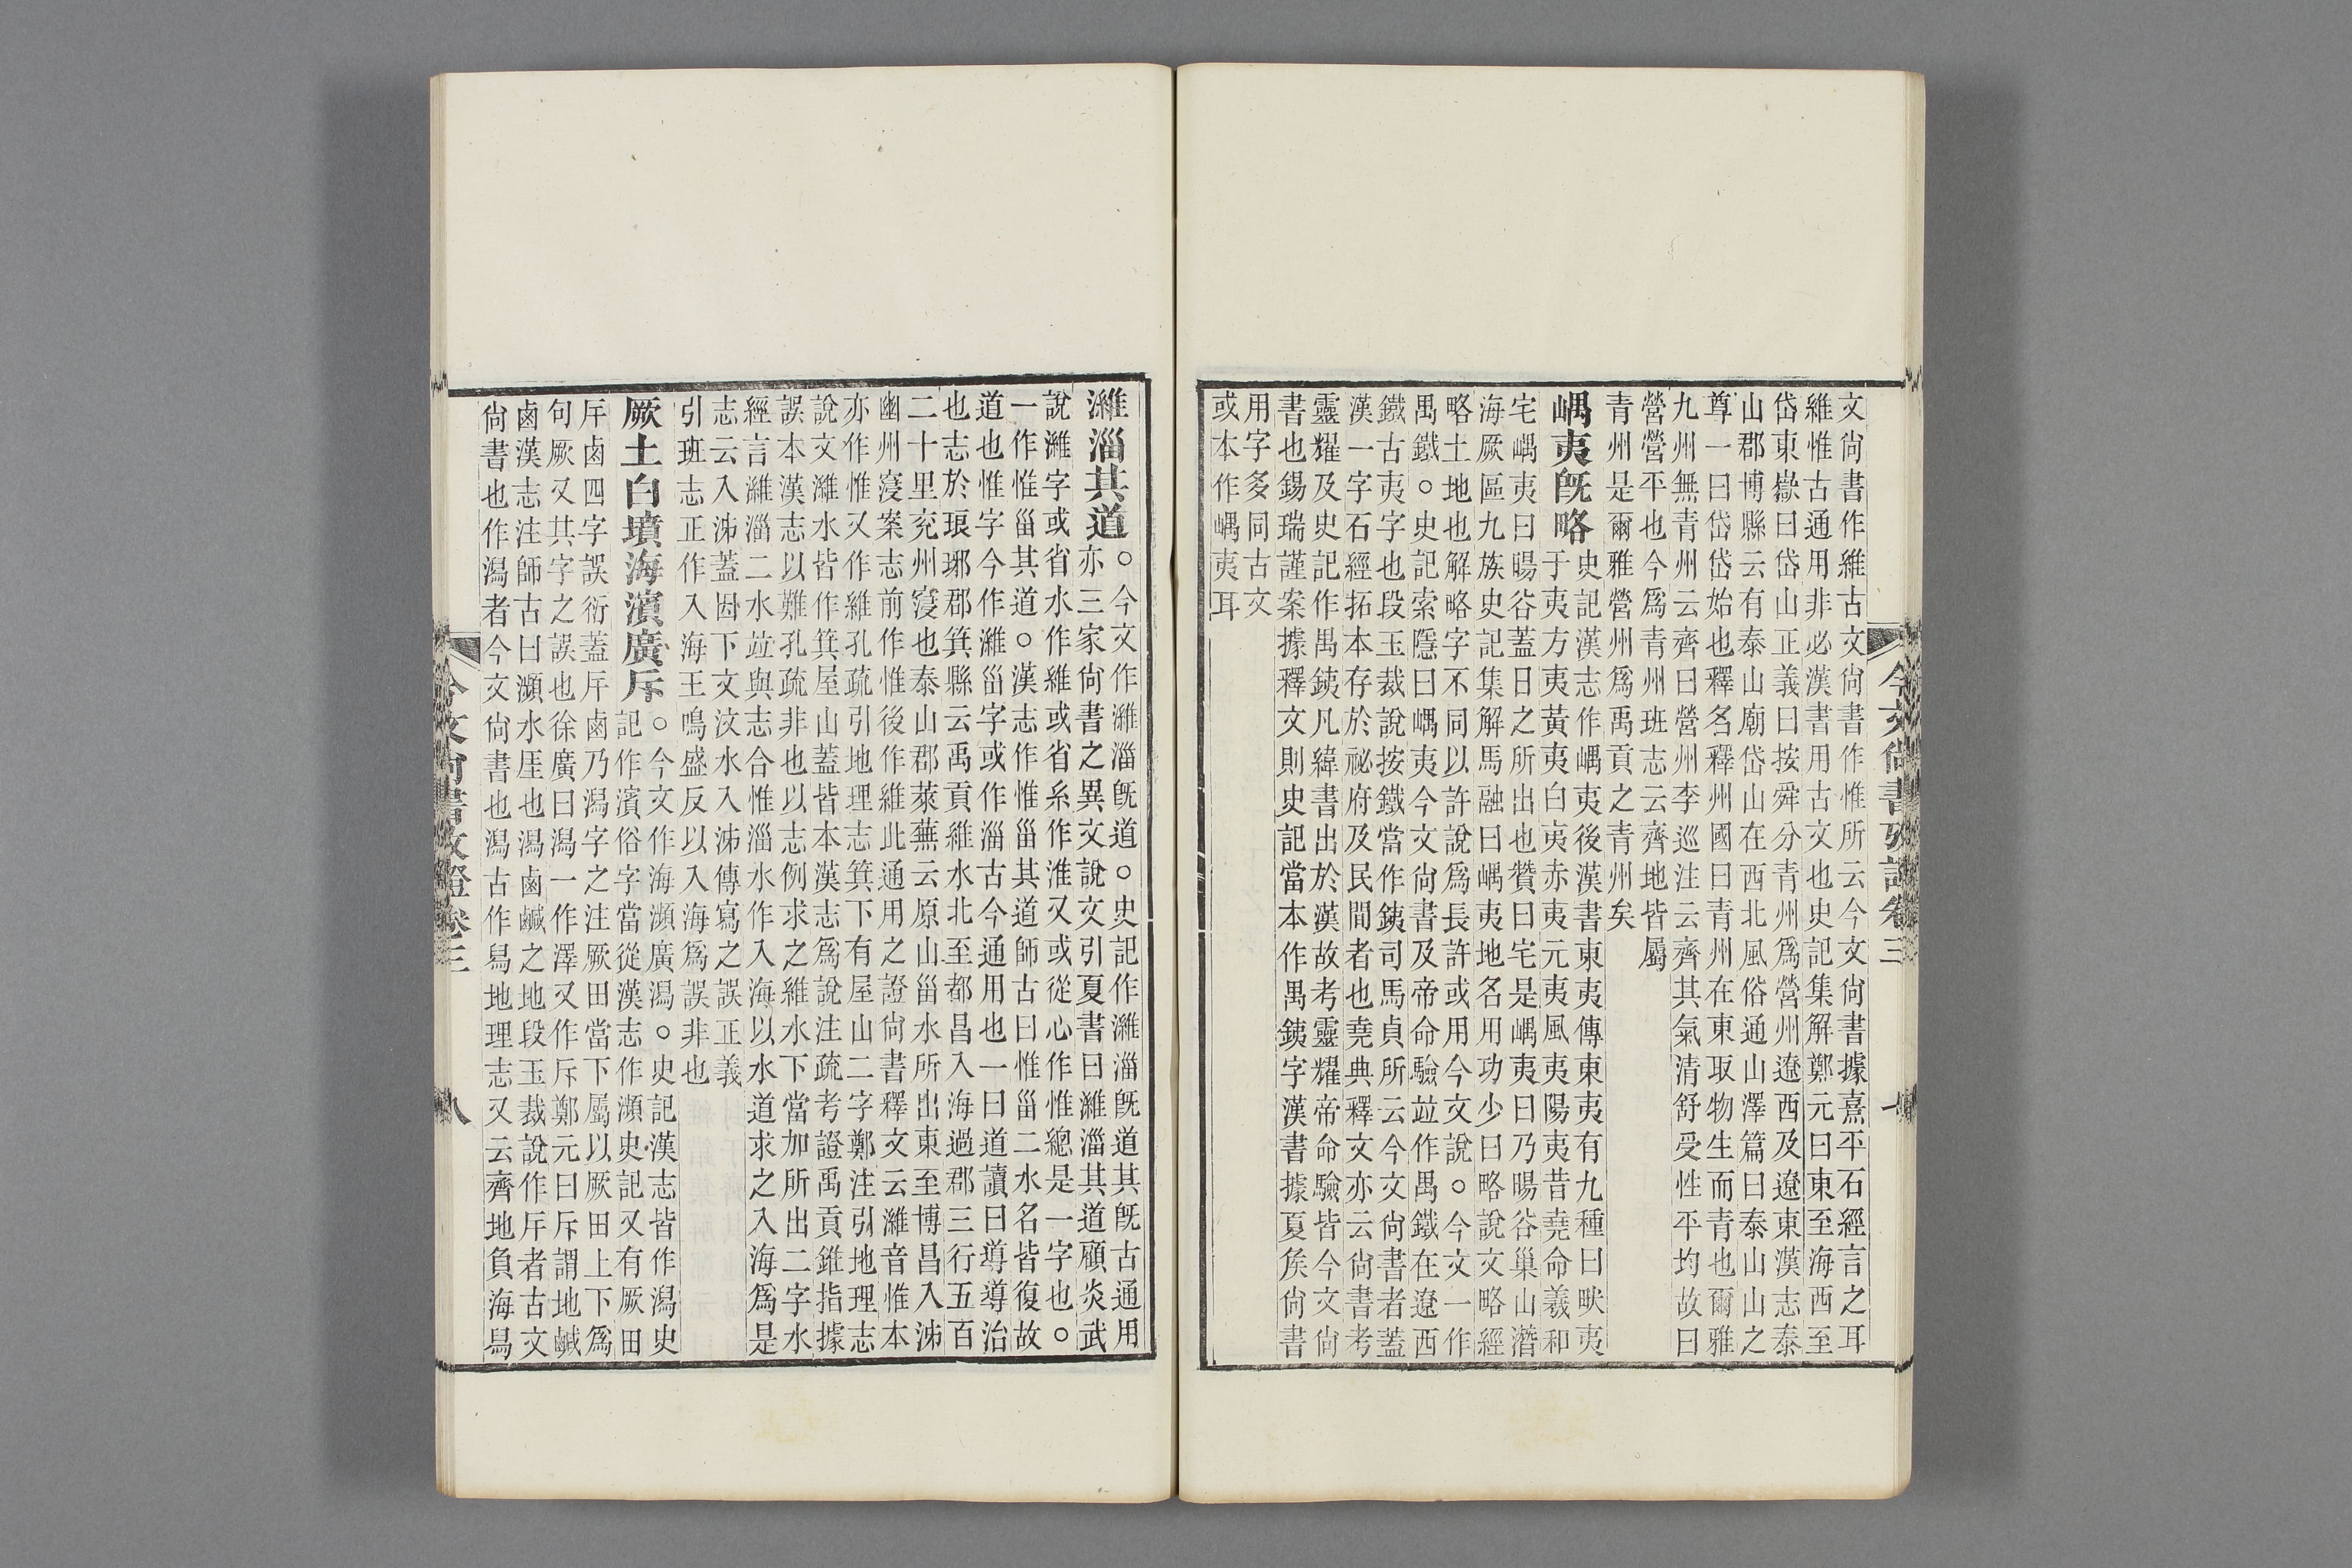 今文尚書攷證卷三
文尚書作維古文尚書作惟所云今文尚書據熹平石經言之耳
維惟古通用非必漢書用古文也史記集解鄭元曰東至海西至
岱東嶽曰岱山正義曰按舜分青州爲營州遼西及遼東漢志泰
山郡博縣云有泰山廟岱山在西北風俗通山澤篇曰泰山山之
尊一曰岱岱始也釋名釋州國曰青州在東取物生而青也爾雅
九州無青州云齊曰營州李巡注云齊其氣清舒受性平均故曰
營營平也今爲青州班志云齊地皆屬
青州是爾雅營州爲禹貢之青州矣
嵎夷旣略史記漢志作嵎夷後漢書東夷傳東夷有九種曰畎夷
于夷方夷黃夷白夷赤夷元夷風夷陽夷昔堯命羲和
宅嵎夷曰暘谷蓋日之所出也贊曰宅是嵎夷曰乃暘谷巢山潛
海厥區九族史記集解馬融曰嵎夷地名用功少曰略說文略經
略土地也解略字不同以許說爲長許或用今文說○今文一作
禺鐵○史記索隱曰嵎夷今文尚書及帝命驗竝作禺鐵在遼西
鐵古夷字也段玉裁說按鐵當作銕司馬貞所云今文尚書者蓋
漢一字石經拓本存於祕府及民間者也堯典釋文亦云尚書考
靈耀及史記作禺銕凡緯書出於漢故考靈耀帝命驗皆今文尚
書也錫瑞謹案據釋文則史記當本作禺銕字漢書據夏矦尚書
用字多同古文
或本作嵎夷耳
濰淄其道○今文作濰淄旣道○史記作濰淄旣道其旣古通用
亦三家尚書之異文說文引夏書曰濰淄其道顧炎武
說濰字或省水作維或省系作淮又或從心作惟總是一字也○
一作惟甾其道○漢志作惟甾其道師古曰惟甾二水名皆復故
道也惟字今作濰甾字或作淄古今通用也一曰道讀曰導導治
也志於琅邪郡箕縣云禹貢維水北至都昌入海過郡三行五百
二十里兖州寖也泰山郡萊蕪云原山甾水所出東至博昌入泲
幽州寖案志前作惟後作維此通用之證尚書釋文云濰音惟本
亦作惟又作維孔疏引地理志箕下有屋山二字鄭注引地理志
說文濰水皆作箕屋山蓋皆本漢志爲說注疏考證禹貢錐指據
誤本漢志以難孔疏非也以志例求之維水下當加所出二字水
經言濰淄二水竝與志合惟淄水作入海以水道求之入海爲是
志云入泲蓋因下文汶水入泲傳寫之誤正義
引班志正作入海王鳴盛反以入海爲誤非也
厥土白墳海濱廣斥○今文作海瀕廣潟○史記漢志皆作潟史
記作濱俗字當從漢志作瀕史記又有厥田
斥鹵四字誤衍蓋斥鹵乃潟字之注厥田當下屬以厥田上下爲
句厥又其字之誤也徐廣曰潟一作澤又作斥鄭元曰斥謂地鹹
鹵漢志注師古曰瀕水厓也潟鹵鹹之地段玉裁說作斥者古文
尚書也作潟者今文尚書也潟古作舄地理志又云齊地負海舄
今文尚書攷證卷三
八